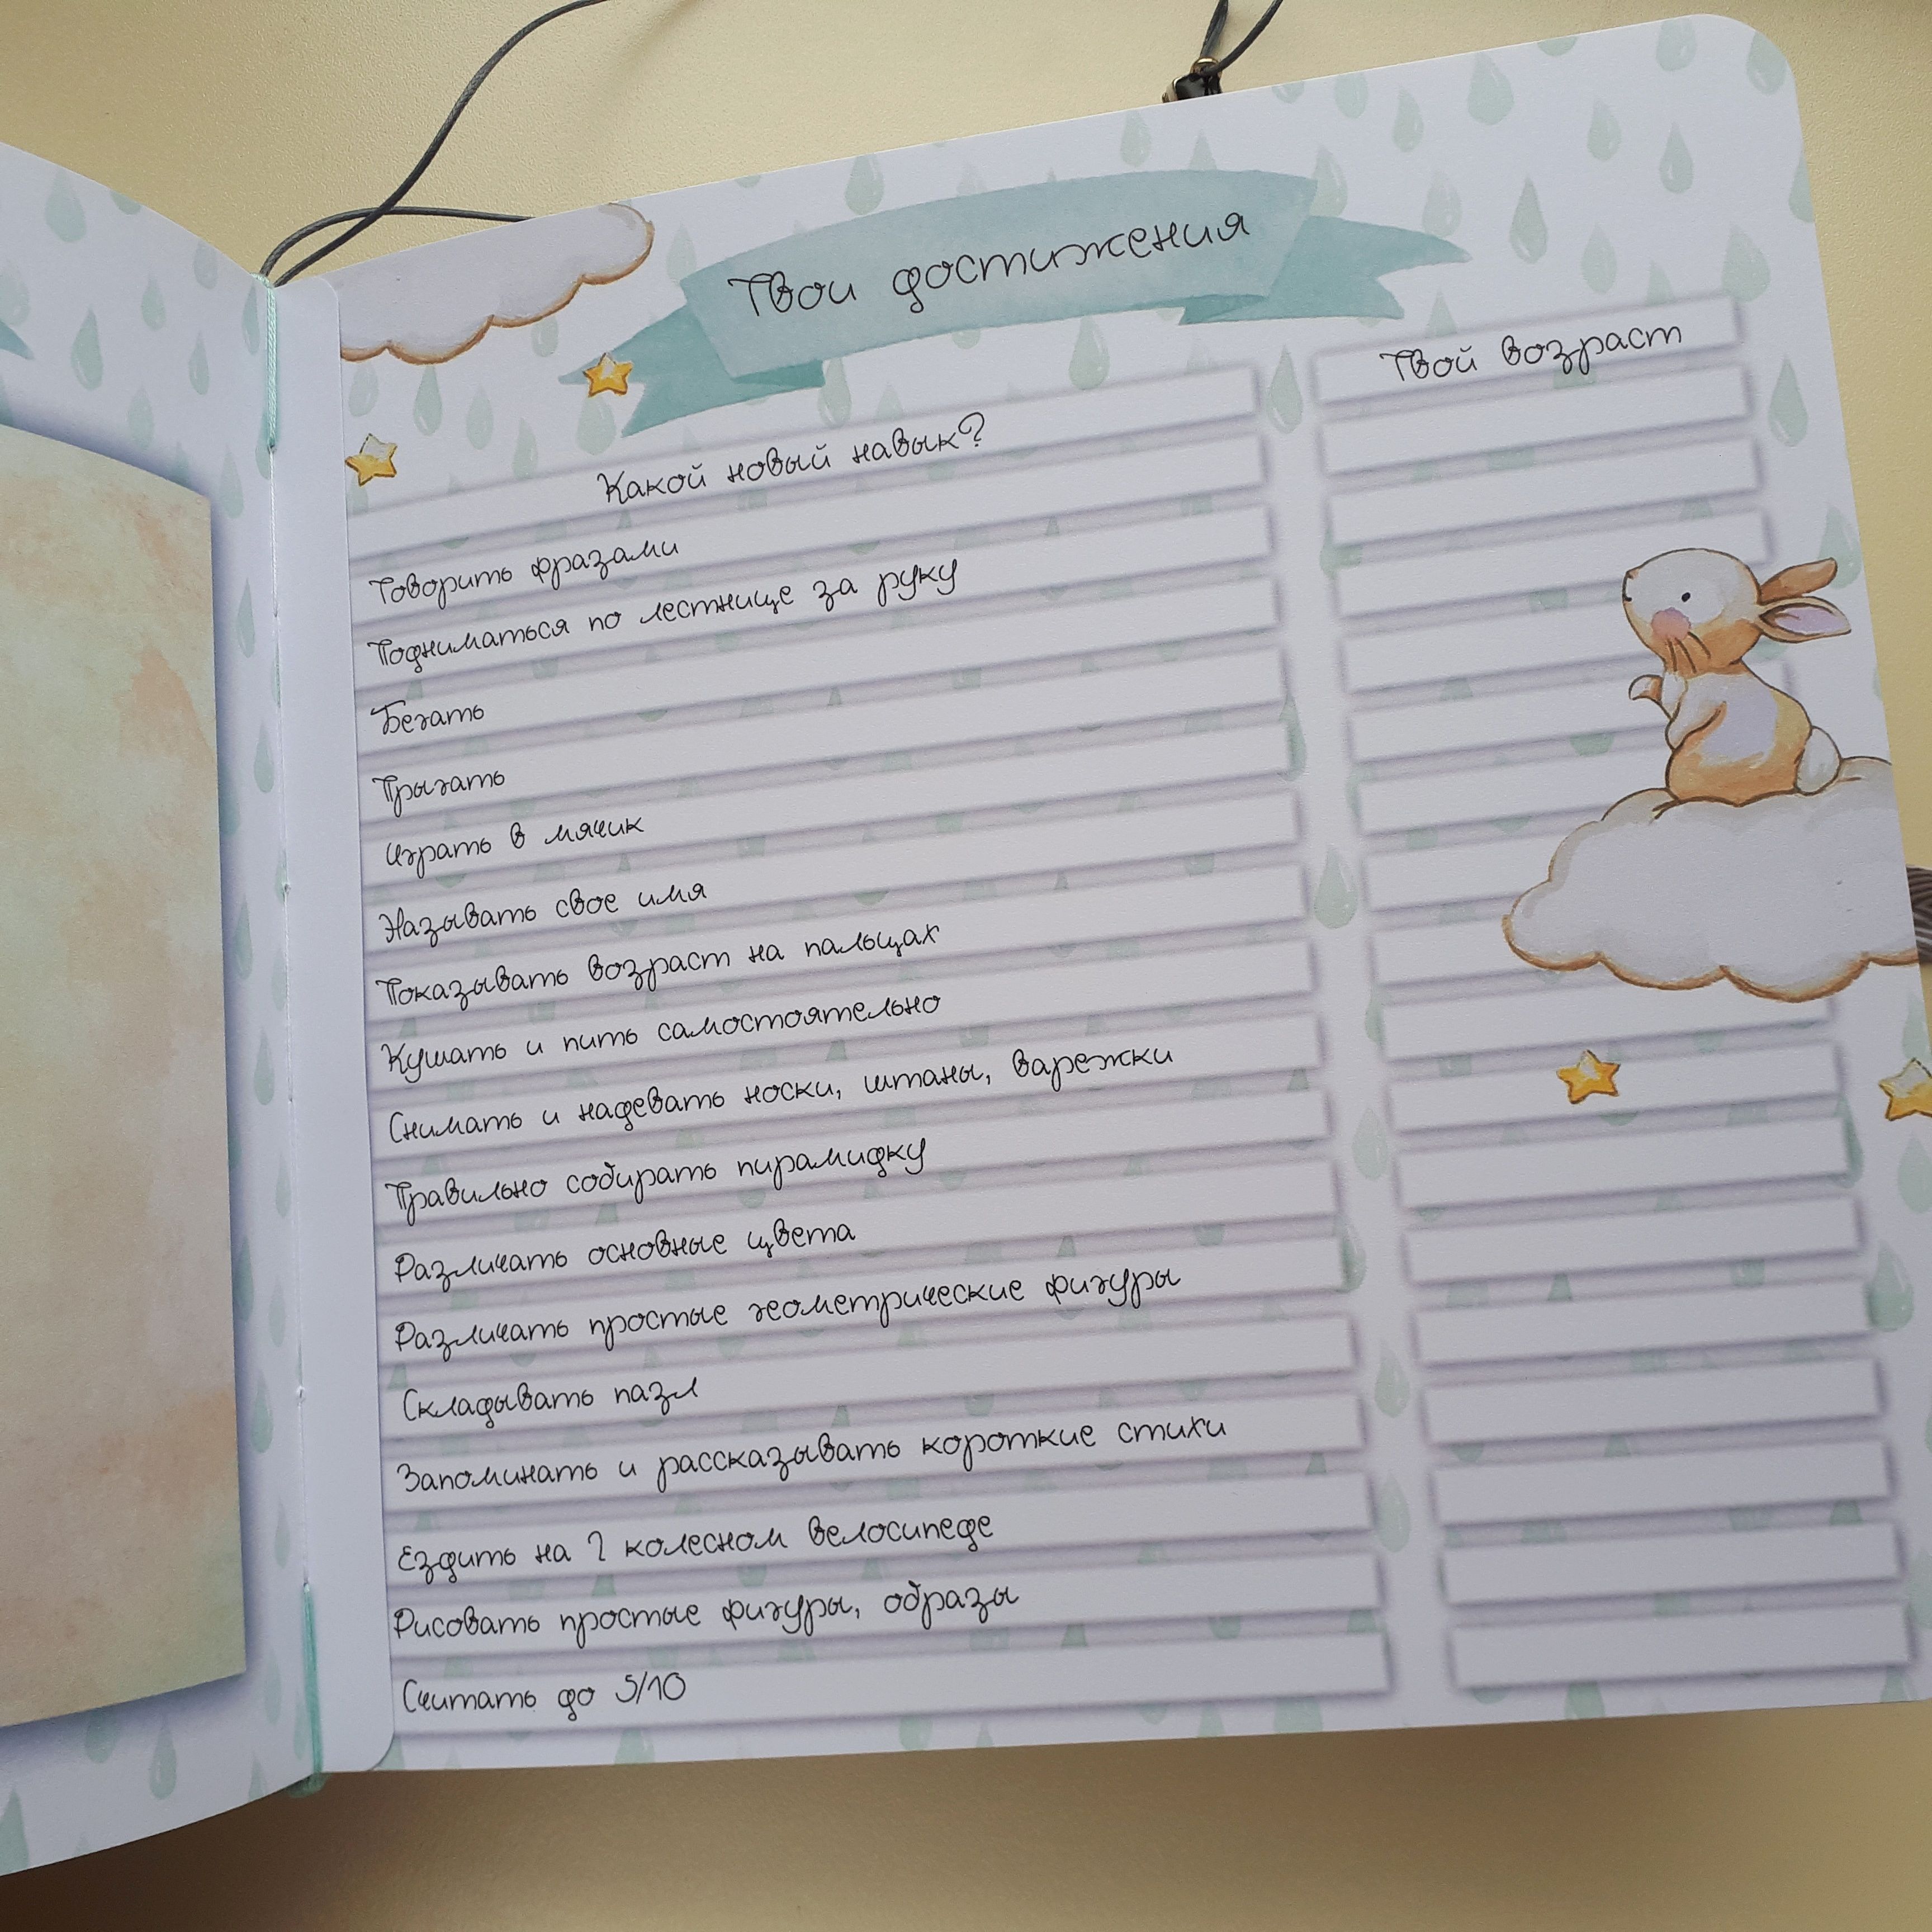 Твои достижения
Какой новый навык?
Твой возраст
Говорить фразами
Подниматься по лестнице за руку
Бегать
Прыгать
Играть в мячик
Называть свое имя
Показывать возраст на пальцах
Кушать и пить самостоятельно
Снимать и надевать носки, штаны, варежки
Правильно собирать пирамидку
Различать основные цвета
Различать простые геометрические фигуры
Складывать пазл
Запоминать и рассказывать короткие стихи
Ездить на 2 колесном велосипеде
Рисовать простые фигуры, образы
Считать до 5/10